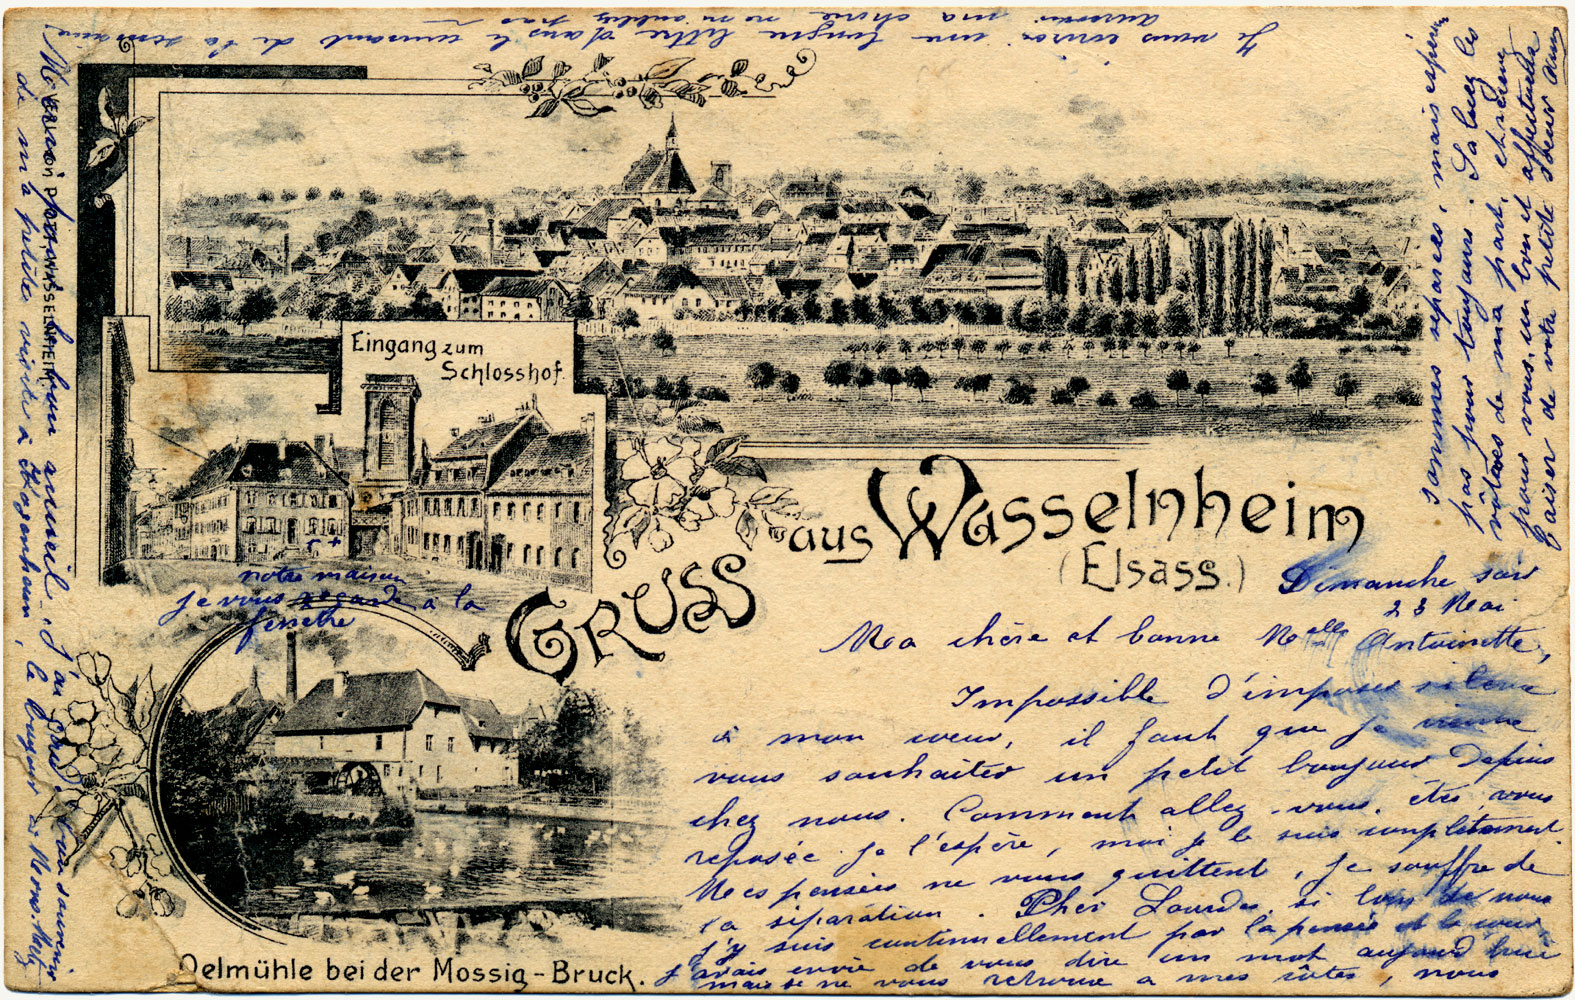 Eingang zum
Schlosshof.
Gruss
aus Wasselnheim
(Elsass.)
Oelmühle bei der Mossig-Bruck.
notre maison
je vous regarde à la
fenêtre
Dimanche soir
23 Mai
Ma chère et bonne Melle Antoinette,
Impossible d'imposer silence
à mon coeur, il faut que je vienne
vous souhaiter un petit bonjour depuis
chez nous. Comment allez-vous, êtes vous
reposée je l'espère, moi je le suis complètement.
Mes pensées ne vous quittent, je souffre de
la séparation. Cher Lourdes, si loin de nous
j'y suis continuellement par la pensée et le coeur
j'avais envie de vous dire un mot aujourd'hui
mais je ne vous retrouve à mes côtés, nous
sommes séparées, mais espérons
pas pour toujours. Saluez les
vôtres de ma part, et recevez
pour vous, un bon et affectueux
baiser de votre petite soeur
Je vous enverrai une longue lettre dans le courant de la semaine
au revoir ma chérie ne m'oubliez pas
Merci pour le bon accueil. J'ai
de ma petite visite à, le bonjour à